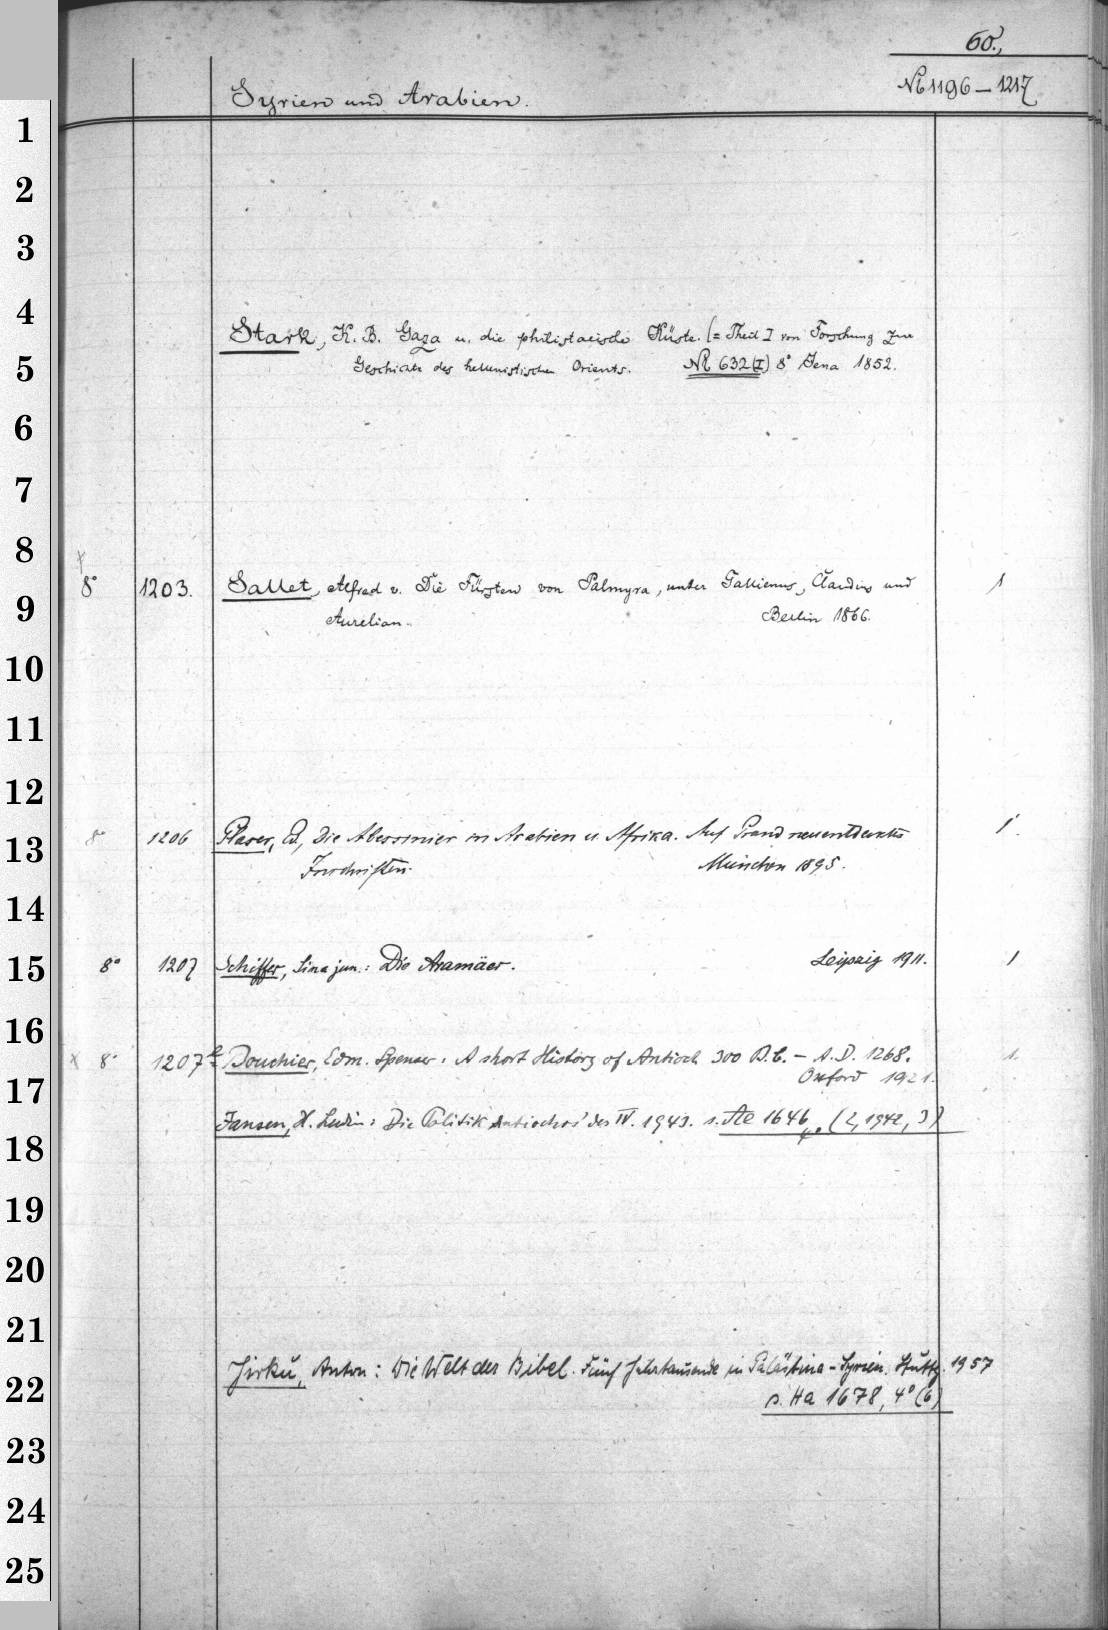 60.,
Syrien und Arabien. № 1196 – 1217
1
2
3
4
Stark, K. B. Gaza u. die philistaeische Küste. (= Theil I von Forschung zur
5
Geschichte des hellenistischen Orients. № 632 (I) 8° Jena 1852.
6
7
8
8° 1203. Sallet, Alfred v. Die Fürsten von Palmyra, unter Gallienus, Claudius und 1
9
Aurelian. Berlin 1866.
10
11
12
8° 1206 Glaser, Ed, Die Abessinier in Arabien u. Afrika. Auf Grund neuentdeckter 1.
13
Inschriften. München 1895.
14
15
8° 1207 Schiffer, Sina jun.: Die Aramäer. Leipzig 1911. 1
16
x 8° 1207 Bouchier, Edm. Spenser: A short History of Antioch 300 B.C. – A.D. 1268. 1.
17
Oxford 1921.
Jansen, H. Ludin: Die Politik Antiochos' des IV. 1943. s. Ae 1646, 4° (2, 1942, 3)
18
19
20
21
Jirku, Anton: Die Welt der Bibel. Fünf Jahrtausende in Palästina-Syrien. Stuttg. 1957
22
s. Ha 1678, 4° (6)
23
24
25